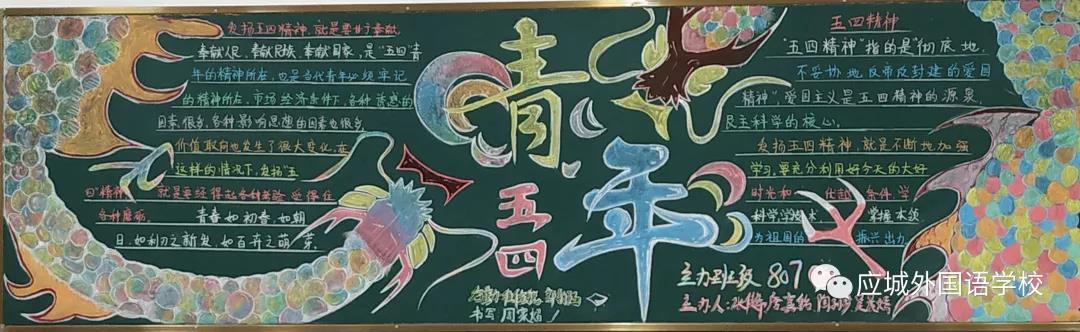 发扬五四精神,就是要甘于奉献
奉献人民,奉献民族,奉献国家,是"五四"青
年的精神所在,也是当代青年必须牢记
的精神所在,市场经济条件下,各种诱惑的
因素很多,各种影响思想的因素也很多
价值取向也发生了很大变化,在
这样的情况下,发扬"五
四"精神,就是要经得起各种考验,受得住
各种磨砺.
青春如初春,如朝
日,如利刃之新发,如百卉之萌芽.
青年
五四
五四精神
"五四精神"指的是"彻底地,
不妥协地反帝反封建的爱国
精神",爱国主义是五四精神的源泉,
民主科学的核心.
发扬五四精神,就是不断地加强
学习,要充分利用好今天的大好
时光和优越条件,学
科学学技术,掌握本领
为祖国的振兴出力
主办班级 807
主办人:
书写 周
应城外国语学校